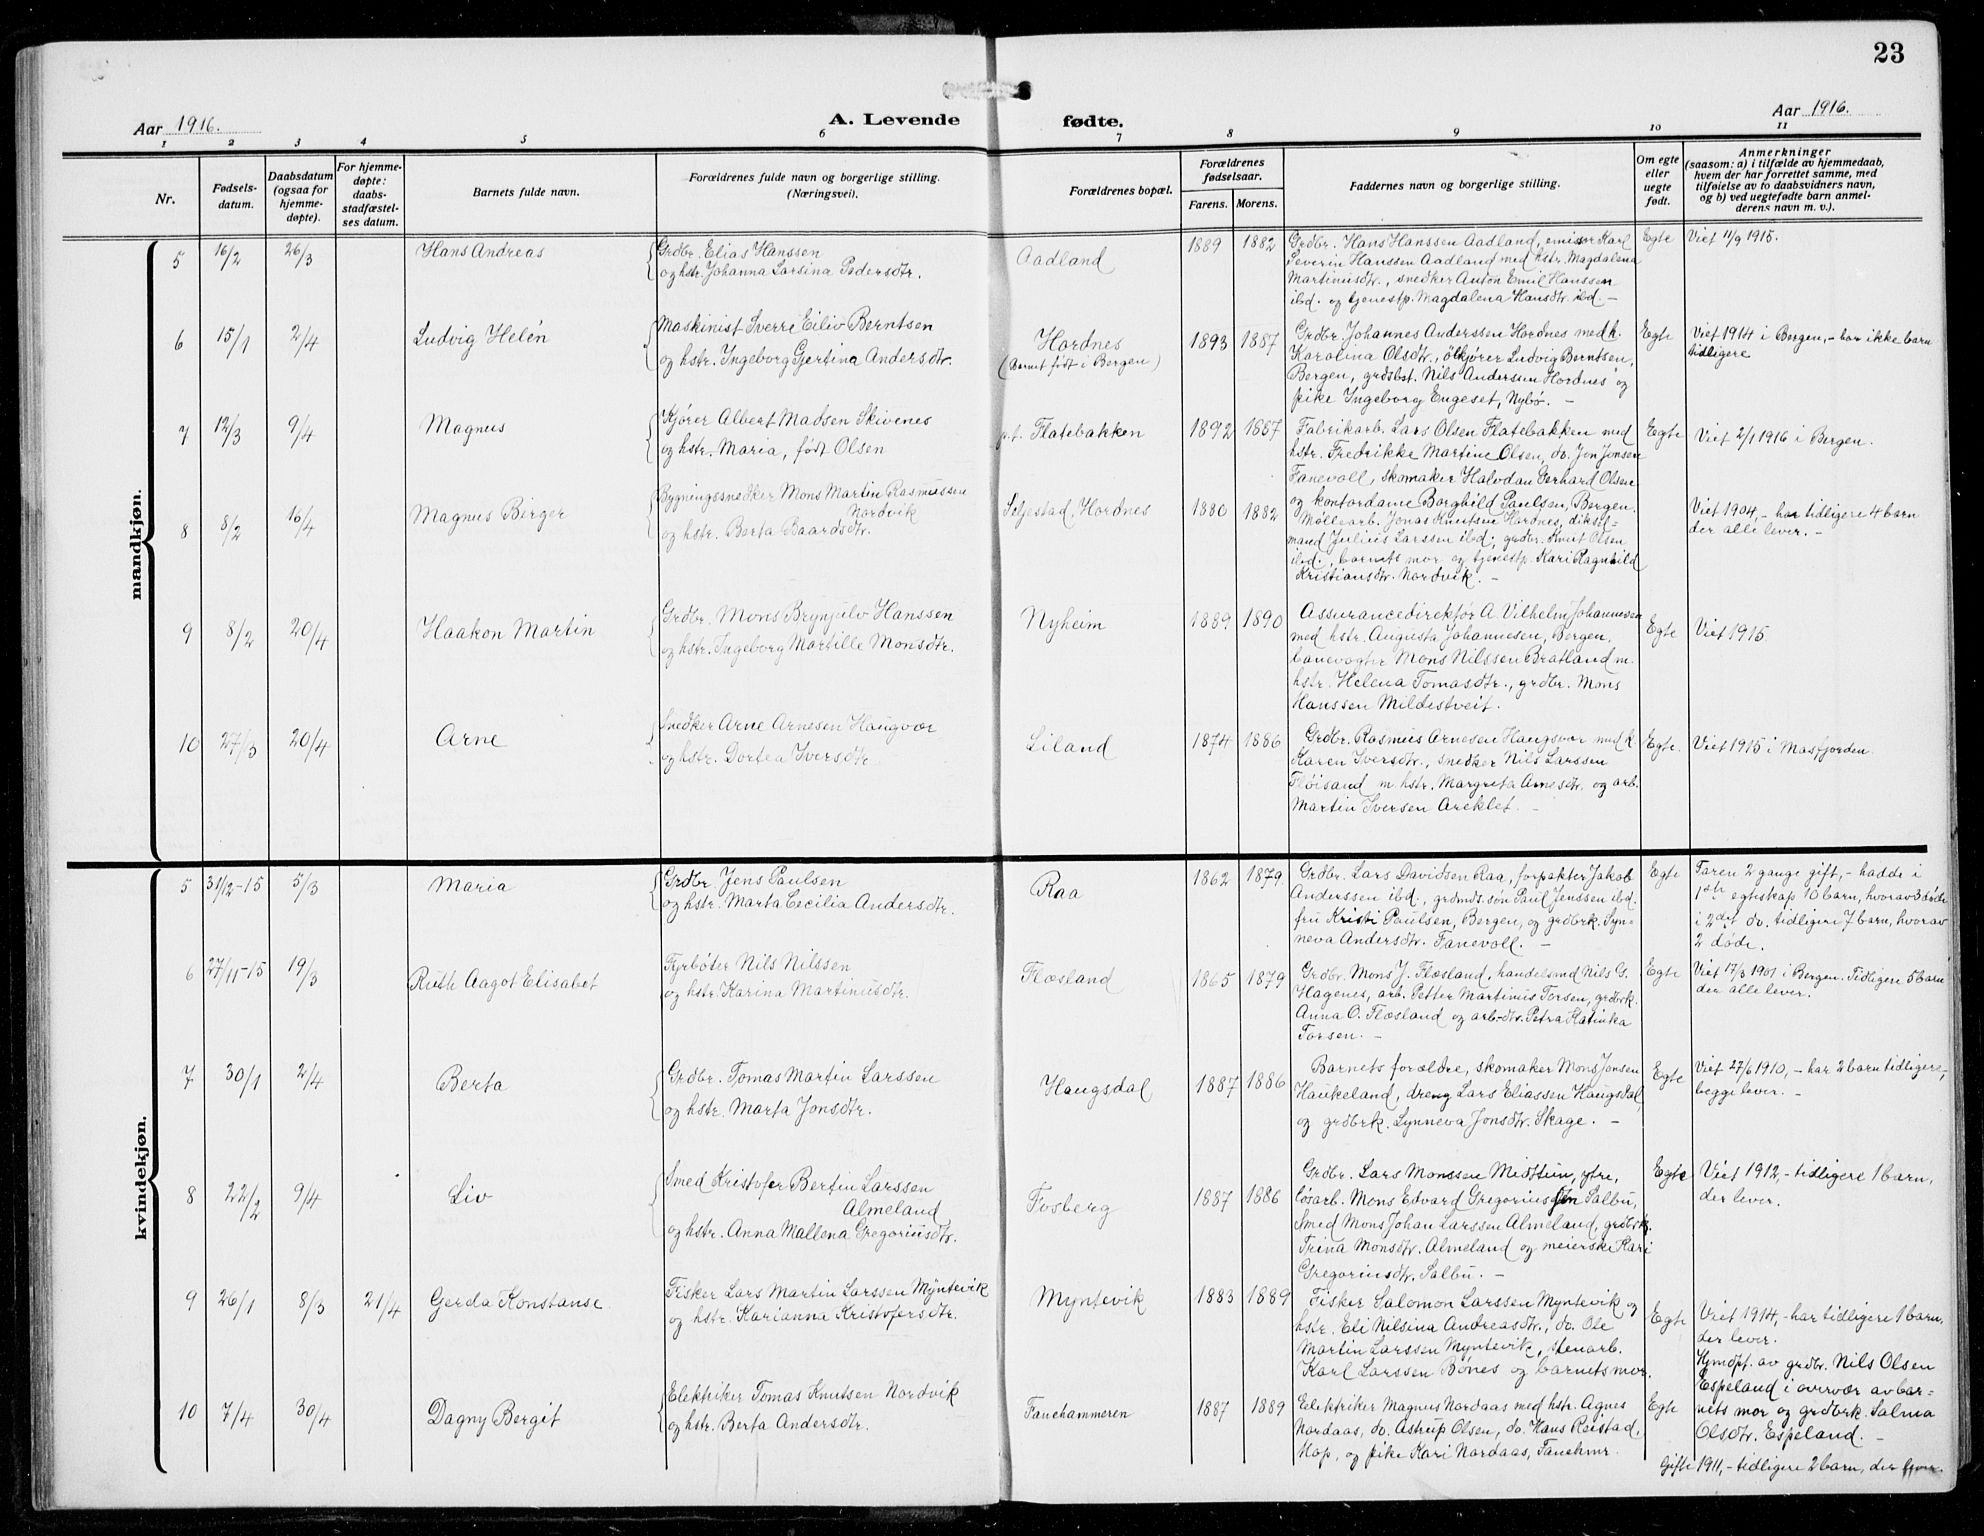 23
Aar 1916.
A. Levende fødte.
Aar 1916.
1 2 3 4 5 6 7 8 9 10 11
Nr.
Fødsels-
datum.
Daabsdatum
(ogsaa for
hjemme-
døpte).
For hjemme-
døpte:
daabs-
stadfæstel-
ses datum.
Barnets fulde navn.
Forældrenes fulde navn og borgerlige stilling.
(Næringsvei).
Forældrenes bopæl.
Forældrenes
fødselsaar.
Farens. Morens.
Faddernes navn og borgerlige stilling.
Om egte
eller
uegte
født.
Anmerkninger
(saasom: a) i tilfælde av hjemmedaab,
hvem der har forrettet samme, med
tilføielse av to daabsvidners navn,
og b) ved uegtefødte barn anmel-
derens navn m. v.).
mandkjøn.
5 16/2 26/3 Hans Andreas
Grdbr. Elias Hanssen
og hstr. Johanna Larsina Pedersdtr.
Aadland 1889 1882
Grdbr. Hans Hanssen Aadland, emissær Karl
Severin Hanssen Aadland med hstr. Magdalena
Martinusdtr., snedker Anton Emil Hanssen
ibd. og tjenestp. Magdalena Hansdtr. ibd. –
Egte Viet 11/9 1915.
6 15/1 2/4 Ludvig Helén
Maskinist Sverre Eiliv Berntsen
og hstr. Ingeborg Gjertina Andersdtr.
Hordnes
(Barnet født i Bergen)
1893 1887
Grdbr. Johannes Anderssen Hordnes med h.
Karolina Olsdtr., ølkjører Ludvig Berntsen,
Bergen, grdsbst. Nils Andersen Hordnes og
pike Ingeborg Engeset, Nybø. –
Egte Viet 1914 i Bergen, – har ikke barn
tidligere
7 12/3 9/4 Magnus
Kjører Albert Madsen Skivenes
og hstr. Maria, født Olsen
p.t. Flatebakken 1892 1887
Fabrikarb. Lars Olsen Flatebakken med
hstr. Fredrikke Martine Olsen, do. Jon Jonsen
Fanevoll, skomaker Halvdan Gerhard Olsen
og kontordame Borghild Paulsen, Bergen.
Egte Viet 2/1 1916 i Bergen.
8 8/2 16/4 Magnus Birger
Bygningssnedker Mons Martin Rasmussen
Nordvik
og hstr. Berta Baardsdtr.
Seljestad, Hordnes 1880 1882
Møllearb. Jonas Knutsen Hordnes, diksel-
mand Julius Larssen ibd., grdbr. Knut Olsen
ibd., barnets mor og tjenestp. Kari Ragnhild
Kristiansdtr. Nordvik. –
Viet 1904, – har tidligere 4 barn
der alle lever. –
9 8/2 20/4 Haakon Martin
Grdbr. Mons Brynjulv Hanssen
og hstr. Ingeborg Martille Monsdtr.
Nyheim 1889 1890
Assurancedirektør A. Vilhelm Johannesen
med hstr. Augusta Johannesen, Bergen,
banevogter Mons Nilssen Bratland m.
hstr. Helena Tomasdtr., grdbr. Mons
Hanssen Mildestveit.
Egte Viet 1915.
10 27/3 20/4 Arne
Snedker Arne Arnesen Haugvær
og hstr. Dortea Iversdtr.
Liland 1874 1886
Grdbr. Rasmus Arnesen Haugsvær med h.
Karen Iversdtr., snedker Nils Larssen
Fløisand m. hstr. Margreta Arnesdtr. og arb.
Martin Iversen Areklet. –
Egte. Viet 1915 i Masfjorden.
kvindekjøn.
5 31/12-15 5/3 Maria
Grdbr. Jens Paulsen
og hstr. Marta Cecilia Andersdtr.
Raa 1862 1879.
Grdbr. Lars Davidsen Raa, forpakter Jakob
Anderssen ibd., grdmds. søn Paul Jenssen ibd.
fru Kristi Paulsen, Bergen, og grdbrk. Syn-
neva Andersdtr. Fanevoll. –
Egte Faren 2 gange gift, – hadde i
1ste egteskap 10 barn, hvorav 3 døde
i 2det do. tidligere 7 barn, hvorav
2 døde.
6 27/11-15 19/3 Ruth Aagot Elisabet
Fyrbøter Nils Nilssen
og hstr. Karina Martinusdtr.
Flæsland 1865 1879
Grdbr. Mons J. Flæsland, handelsmd Nils G.
Hagenes, arb. Petter Martinus Torsen, grdbrk.
Anna O. Flæsland og arb.-dtr. Petra Katinka
Torsen. –
Egte Viet 17/3 1901 i Bergen. Tidligere 5 barn
der alle lever.
7 30/1 2/4 Berta
Grdbr. Tomas Martin Larssen
og hstr. Marta Jonsdtr.
Haugsdal 1887 1886
Barnets forældre, skomaker Mons Jonsen
Haukeland, dreng Lars Eliassen Haugsdal
og grdbrk. Synneva Jonsdtr. Skage. –
Egte Viet 27/6 1910, – har 2 barn tidligere,
begge lever. –
8 22/2 9/4 Liv
Smed Kristofer Bertin Larssen
Almeland
og hstr. Anna Mallena Gregoriusdtr.
Fosberg 1887 1886
Grdbr. Lars Monssen Midttun, ytre,
løsarb. Mons Edvard Gregoriussen Salbu,
Smed Mons Johan Larssen Almeland, grdbrk.
Trina Monsdtr. Almeland og meierske Kari
Gregoriusdtr. Salbu. –
Egte Viet 1912, – tidligere 1 barn,
der lever.
9 26/1 8/3 21/4 Gerda Konstanse
Fisker Lars Martin Larssen Myntevik
og hstr. Karianna Kristofersdtr.
Myntevik 1883 1889
Fisker Salomon Larssen Myntevik og
hstr. Eli Nilsina Andreasdtr., do. Ole
Martin Larssen Myntevik, stenarb.
Karl Larssen Bønes og barnets mor.
Egte Viet 1914, – har tidligere 1 barn,
der lever.
Hjmdpt. av grdbr. Nils Olsen
Espeland i overvær av bar-
nets mor og grdbrk. Salma
Olsdtr. Espeland. –
10 7/4 30/4 Dagny Bergit
Elektriker Tomas Knutsen Nordvik
og hstr. Berta Andersdtr.
Fanehammeren 1887 1889
Elektriker Magnus Nordaas med hstr. Agnes
Nordaas, do. Astrup Olsen, do. Hans Reistad,
Hop, og pike Kari Nordaas, Fanehmr.
Egte
Gifte 1911, – tidligere 2 barn, der lever.